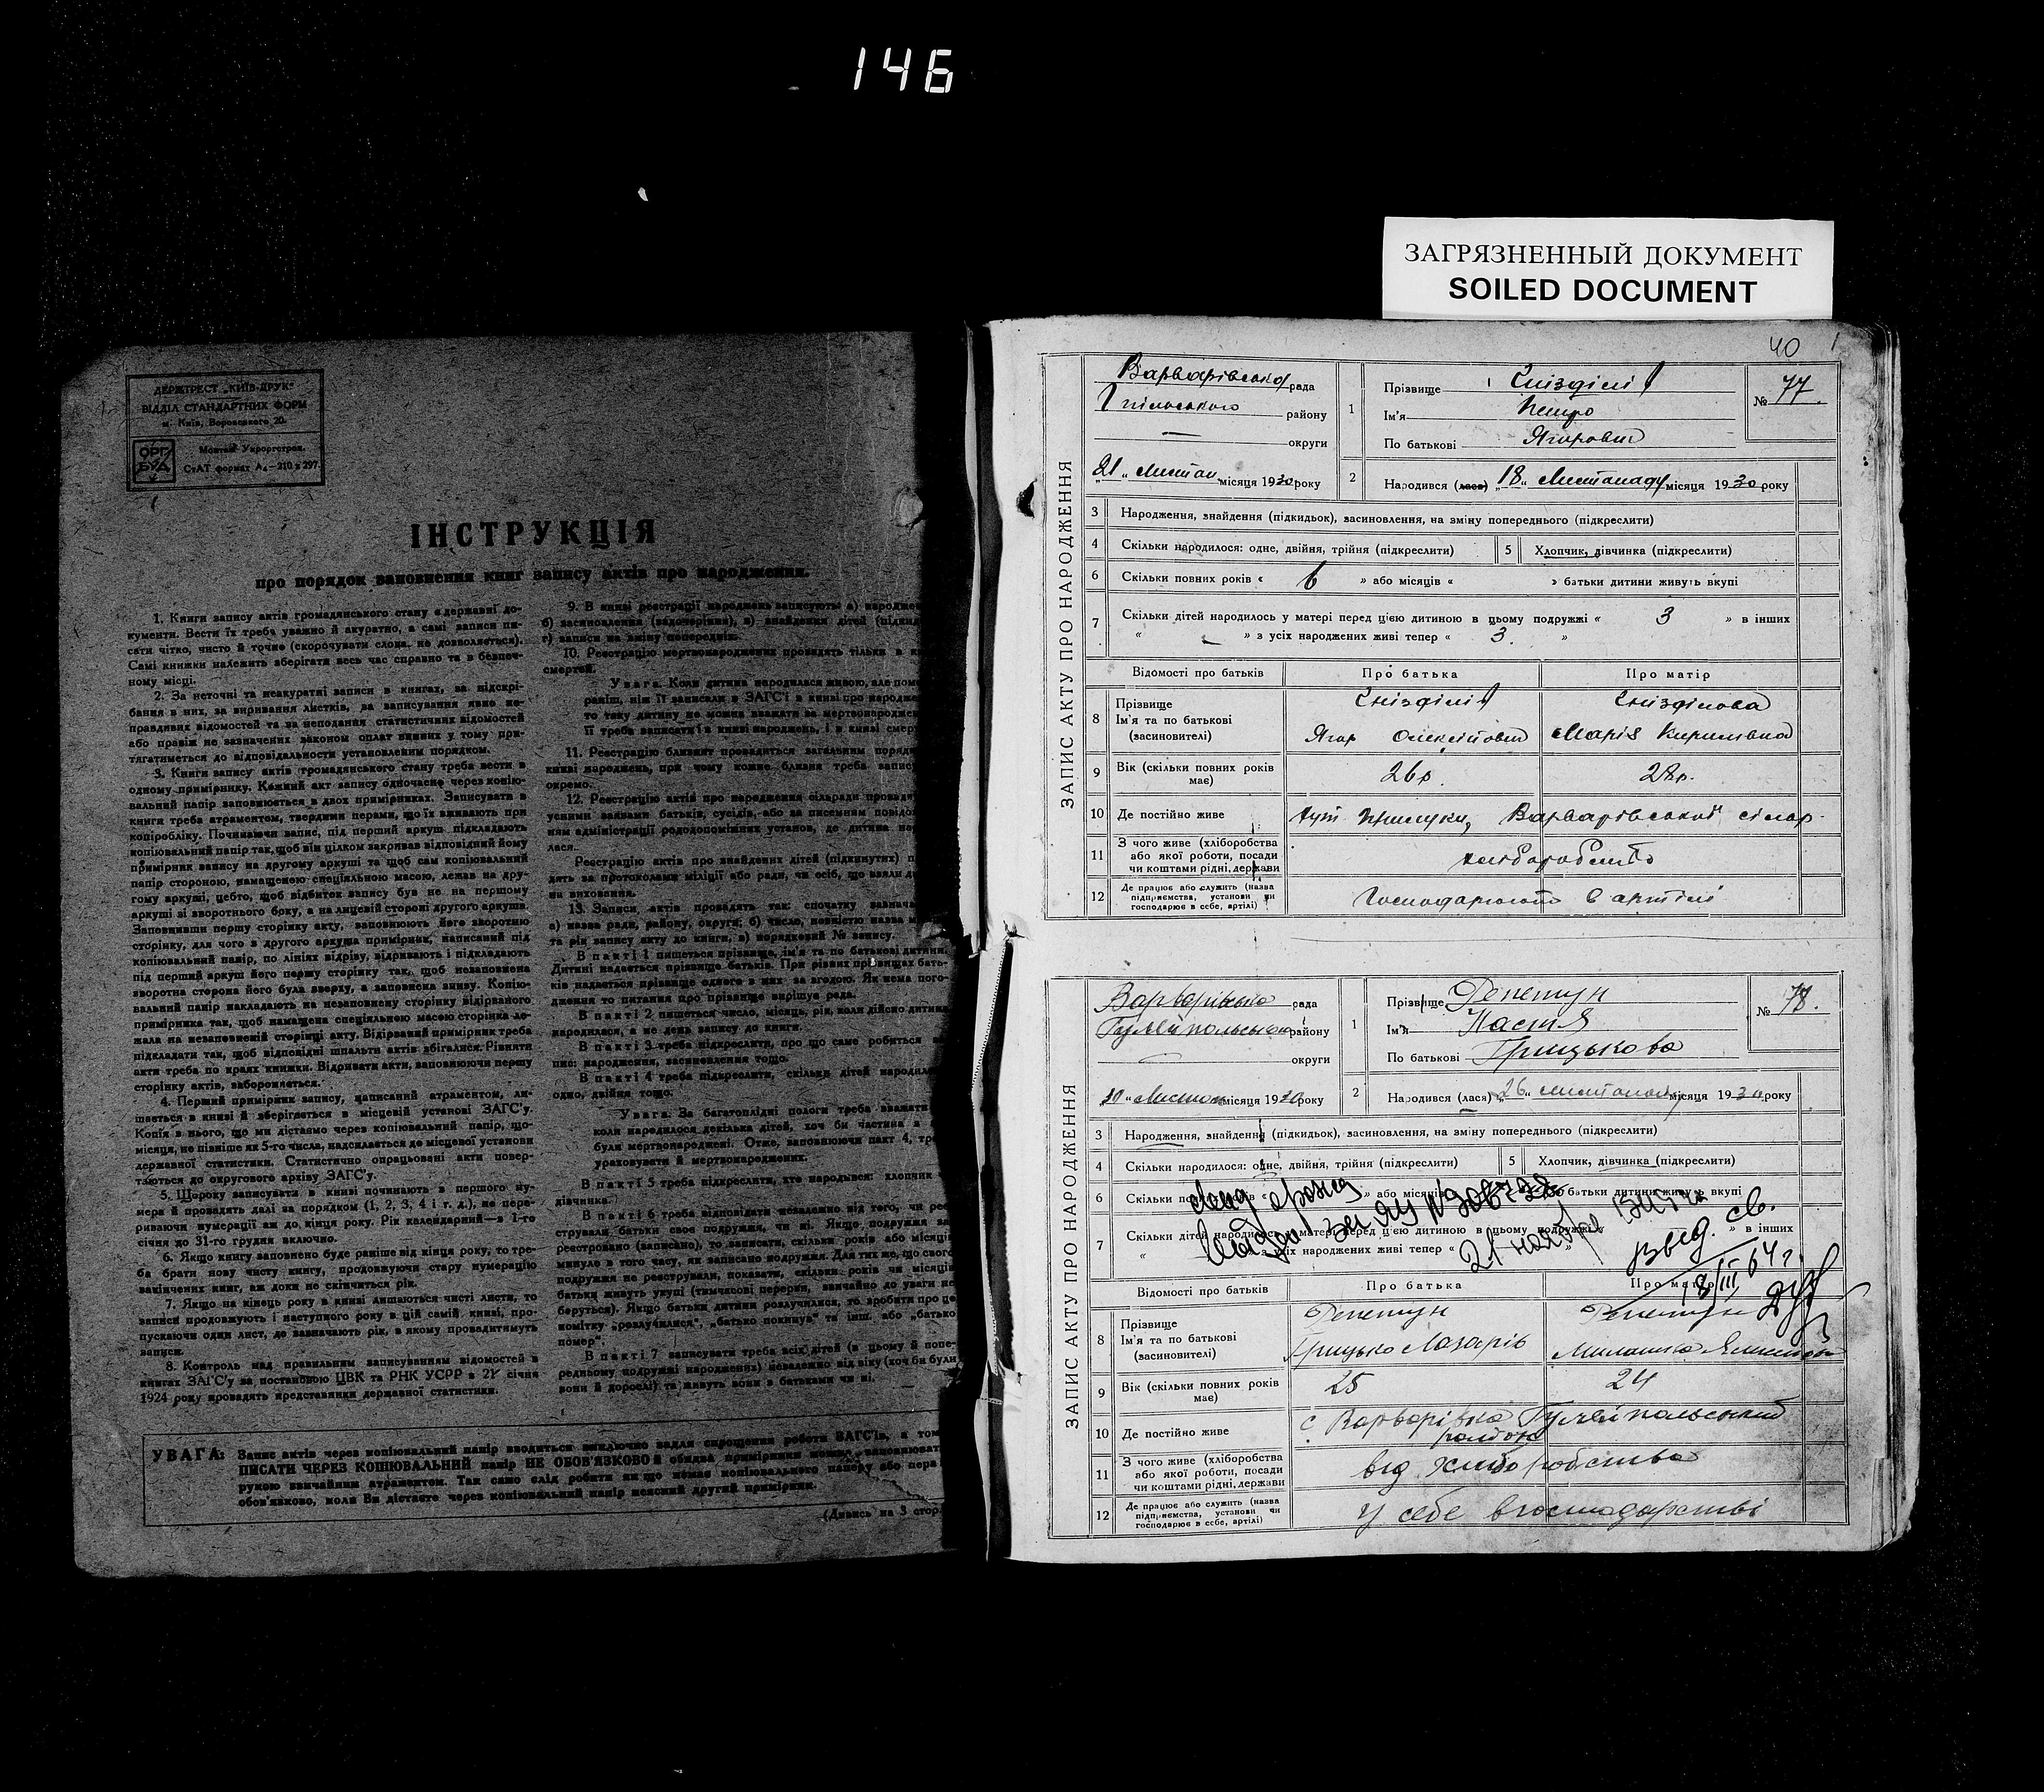 146
ЗАГРЯЗНЕННЫЙ ДОКУМЕНТ
SOILED DOCUMENT
ДЕРЖТРЕСТ „КИЇВ-ДРУК"
ВІДДІЛ СТАНДАРТНИХ ФОРМ
м. Київ, Воровського 20.
ОРГ
БУД
Монтаж Укроргстрон.
СтАТ формат А₄—210 x 297.
ІНСТРУКЦІЯ
про порядок заповнення книг запису актів про народження.
1. Книги запису актів громадянського стану є державні до-
кументи. Вести їх треба уважно й акуратно, а самі записи пи-
сати чітко, чисто й точно (скорочувати слова не дозволяється).
Самі книжки належить зберігати весь час справно та в безпеч-
ному місці.
2. За неточні та неакуратні записи в книгах, за підскрі-
бання в них, за виривання листків, за записування явно не-
правдивих відомостей та за неподання статистичних відомостей
або правіж не зазначених законом оплат винних у тому при-
тягатиметься до відповідальности установленим порядком.
3. Книги запису актів громадянського стану треба вести в
одному примірнику. Кожний акт запису одночасно через копію-
вальний папір заповнюється в двох примірниках. Записувати в
книги треба атраментом, твердими перами, що їх вживають при
копіробліку. Починаючи запис, під перший аркуш підкладають
копіювальний папір так, щоб він цілком закривав відповідний йому
примірник запису на другому аркуші та щоб сам копіювальний
папір стороною, намащеною спеціяльною масою, лежав на дру-
гому аркуші, цебто, щоб відбиток запису був не на першому
аркуші зі зворотнього боку, а на лицевій стороні другого аркуша.
Заповнивши першу сторінку акту, заповнюють його зворотню
сторінку, для чого в другого аркуша примірник, написаний під
копіювальний папір, по лініях відріву, відривають і підкладають
під перший аркуш його першу сторінку так, щоб незаповнена
зворотна сторона його була зверху, а заповнена внизу. Копію-
вальний папір накладають на незаповнену сторінку відірваного
примірника так, щоб намащена спеціяльною масою сторінка ле-
жала на незаповненій сторінці акту. Відірваний примірник треба
підкладати так, щоб відповідні шпальти актів збігалися. Рівняти
акти треба по краях книжки. Відривати акти, заповнюючи першу
сторінку актів, забороняється.
4. Перший примірник запису, написаний атраментом, ли-
шається в книзі й зберігається в місцевій установі ЗАГС'у.
Копія з нього, що ми дістаємо через копіювальний папір, що-
місяця, не пізніше як 5-го числа, надсилається до місцевої установи
державної статистики. Статистично опрацьовані акти повер-
таються до округового архіву ЗАГС'у.
5. Щороку записувати в книзі починають з першого ну-
мера й провадять далі за порядком (1, 2, 3, 4 і т. д.), не пере-
риваючи нумерації аж до кінця року. Рік календарний—з 1-го
січня до 31-го грудня включно.
6. Якщо книгу заповнено буде раніше від кінця року, то тре-
ба брати нову чисту книгу, продовжуючи стару нумерацію
закінчених книг, аж доки не скінчиться рік.
7. Якщо на кінець року в книзі лишаються чисті листи, то
записи продовжують і наступного року в цій самій книзі, про-
пускаючи один лист, де зазначають рік, в якому провадитимуть
записи.
8. Контроль над правильним записуванням відомостей в
книгах ЗАГС'у за постановою ЦВК та РНК УСРР з 21 січня
1924 року провадять представники державної статистики.
9. В книзі реєстрації народжень записують: а) народжен
б) засиновлення (вдочеріння), в) знайдення дітей (підкид
г) записи на зміну попередніх.
10. Реєстрацію мертвонароджених провадять тільки в кн
смертей.
Увага. Коли дитина народилася живою, але пом
раніш, ніж її записали в ЗАГС'і в книзі про народж
то таку дитину не можна вважати за мертвонароджен
її треба записати і в книзі народжень, і в книзі смер
11. Реєстрацію близнят провадиться загальним поряд
книзі народжень, при чому кожне близня треба запису
окремо.
12. Реєстрацію актів про народження сільради провадя
усними заявами батьків, сусідів, або за писемним повідо
ням адміністрації рододопоміжних установ, де дитина на
лася.
Реєстрацію актів про знайдених дітей (підкинутих) п
дять за протоколами міліції або ради, чи осіб, що взяли ди
на виховання.
13. Записи актів провадять так: спочатку зазнача
а) назва ради, району, округи; б) число, повністю назва м
та рік запису акту до книги, в) порядковий № запису.
В пакті 1 пишеться прізвище, ім'я та по батькові дитини.
Дитині надається прізвище батьків. При різних прізвищах бать-
ків надається прізвище одного з них за згодою. Як нема пого-
дження то питання про прізвище вирішує рада.
В пакті 2 пишеться число, місяць, рік, коли дійсно дитина
народилася, а не день запису до книги.
В пакті 3 треба підкреслити, про що саме робиться за
пис: народження, засиновлення тощо.
В пакті 4 треба підкреслити, скільки дітей народило
одно, двійня тощо.
Увага. За багатоплідні пологи треба вважати
коли народилося декілька дітей, хоч би частина з
були мертвонароджені. Отже, заповнюючи пакт 4, тре
ураховувати й мертвонароджених.
В пакті 5 треба підкреслити, хто народився: хлопчик
дівчинка.
В пакті 6 треба відповідати незалежно від того, чи реє
стрували батьки своє подружжя, чи ні. Якщо подружжя за
реєстровано (записано), то записати, скільки років або місяців
минуло з того часу, як записано подружжя. Для тих же, що свого
подружжя не реєстрували, показати, скільки років чи місяців
батьки живуть укупі (тимчасові перерви, звичайно до уваги не
беруться). Якщо батьки дитини розлучилися, то зробити про це
помітку „розлучилися", „батько покинув" та інш. або „батько
помер".
В пакті 7 записувати треба всіх дітей (в цьому й попе-
редньому подружжі народжених) незалежно від віку (хоч би були
вони й дорослі) та живуть вони з батьками чи ні.
УВАГА: Запис актів через копіювальний папір вводиться виключно задля спрощення роботи ЗАГС'ів, а том
ПИСАТИ ЧЕРЕЗ КОПІЮВАЛЬНИЙ папір НЕ ОБОВ'ЯЗКОВО й обидва примірники можна заповнювати
рукою звичайним атраментом. Так само слід робити якщо немає копіювального паперу або пера
обов'язково, коли Ви дістаєте через копіювальний папір неясний другий примірник.
(Дивись на 3 стор.
40
ЗАПИС АКТУ ПРО НАРОДЖЕННЯ
Варварівська рада
району
округи
21 „ листоп. місяця 1930 року
1 Прізвище Снізділів
Ім'я Петро
По батькові Ягорович
№ 77.
2 Народився (лася) „18" Листопаду місяця 1930 року
3 Народження, знайдення (підкидьок), засиновлення, на зміну попереднього (підкреслити)
4 Скільки народилося: одне, двійня, трійня (підкреслити) 5 Хлопчик, дівчинка (підкреслити)
6 Скільки повних років « 6 » або місяців « » батьки дитини живуть вкупі
7 Скільки дітей народилось у матері перед цією дитиною в цьому подружжі « 3 » в інших
« - » з усіх народжених живі тепер « 3. »
Відомості про батьків Про батька Про матір
8 Прізвище Снізділів Снізділова
Ім'я та по батькові
(засновителі) Ягор Олексійович Марія Кирилівна
9 Вік (скільки повних років має) 26р. 28р.
10 Де постійно живе хут Прилуки, Варварівської сільр.
11 З чого живе (хліборобства
або якої роботи, посади
чи коштами рідні, держави хліборобство
12 Де працює або служить (назва
підприємства, установи чи
господарює в себе, артілі) Господарюють в артілі
ЗАПИС АКТУ ПРО НАРОДЖЕННЯ
Варварівська рада
Гуляйпольського району
округи
місяця 1930 року
1 Прізвище Репетун
Ім'я Настя
По батькові Грицькова
№ 78.
2 Народився (лася) „26" листопада місяця 1930 року
3 Народження, знайдення (підкидьок), засиновлення, на зміну попереднього (підкреслити)
4 Скільки народилося: одне, двійня, трійня (підкреслити) 5 Хлопчик, дівчинка (підкреслити)
6 або місяців батьки дитини живуть вкупі
7 Скільки дітей народилось у матері перед цією дитиною в цьому подружжі « » в інших
« з усіх народжених живі тепер «
21 ноября
выд. св.
18/III 64 г.
Відомості про батьків Про батька Про матір
8 Прізвище Репетун Репетун
Ім'я та по батькові
(засновителі) Грицько Лазарів Миланка
9 Вік (скільки повних років має) 25 24
10 Де постійно живе с Варварівка Гуляйпольський
району
11 З чого живе (хліборобства
або якої роботи, посади
чи коштами рідні, держави від хліборобства
12 Де працює або служить (назва
підприємства, установи чи
господарює в себе, артілі) У себе в господарстві